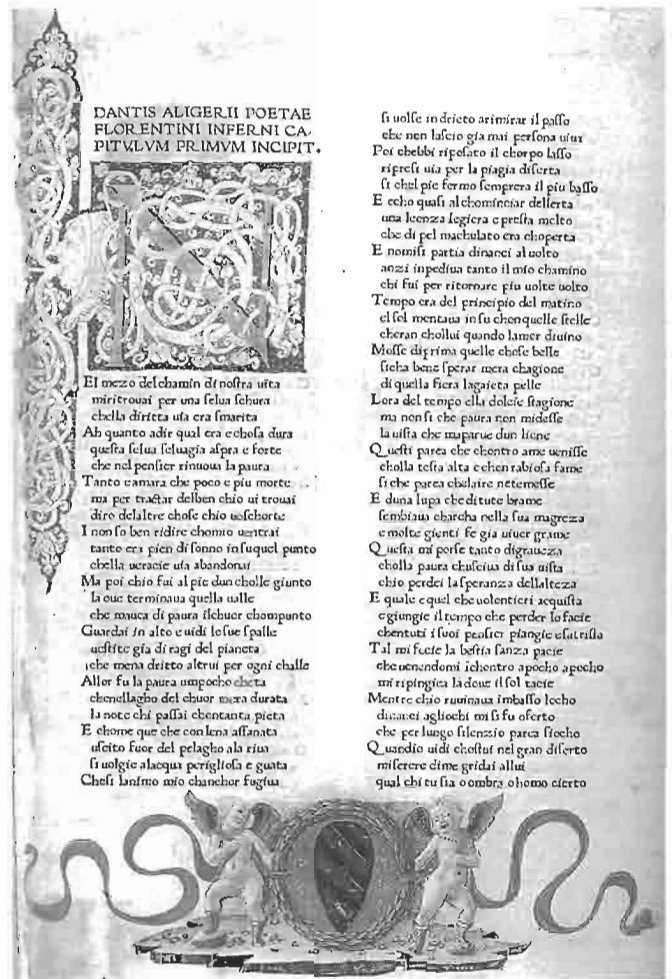 DANTIS ALIGERII POETAE
FLORENTINI INFERNI CA-
PITVLVM PRIMVM INCIPIT.
N
EI mezo del chamin di nostra uita
mi ritrouai per una selua schura
chella diritta uia era smarita
Ah quanto a dir qual era e chosa dura
questa selua seluagia aspra e forte
che nel pensier rinuoua la paura
Tanto e amara che poco e piu morte
ma per tractar del ben chio ui trouai
diro delaltre chose chio
I non so ben ridire chomio uentrai
tanto era pien di sonno in su quel punto
chella ueracie uia abandonai
Ma poi chio fui al pie dun cholle giunto
la oue terminaua quella ualle
che mauea di paura il chuor chompunto
Guardai in alto e uidi le sue spalle
uestite gia di ragi del pianeta
che mena dritto altrui per ogni challe
Allor fu la paura umpocho cheta
che nellagho del chuor mera durata
la note chi passai chontanta pieta
E chome que che con lena affanata
uscito fuor del pelagho ala riua
si uolgie alacqua perigliosa e guata
Chosi lanimo mio chanchor fugiua
si uolse indrieto arimirar il passo
che non lascio gia mai persona uiua
Poi chebbi riposato il chorpo lasso
ripresi uia per la piagia diserta
si chel pie fermo semprera il piu basso
E echo quasi al chominciar dellerta
una leonza legiera e presta molto
che di pel machulato era choperta
E nomisi partia dinanci al uolto
anzi inpediua tanto il mio chamino
chi fui per ritornare piu uolte uolto
Tempo era del principio del matino
el sol montaua in su chonquelle stelle
cheran chollui quando lamor diuino
Mosse di prima quelle chose belle
sicha bene sperar mera chagione
di quella fiera la gaieta pelle
Lora del tempo ella dolcie stagione
ma non si che paura non midesse
la uista che maparue dun lione
Questi parea che chontro ame uenisse
cholla testa alta e chon rabiosa fame
si che parea che laire ne temesse
E duna lupa che di tute brame
sembiaua charcha nella sua magreza
e molte gienti fe gia uiuer grame
Questa mi porse tanto di graueza
cholla paura chusciua di sua uista
chio perdei la speranza dellalteza
E quale e quel che uolontieri acquista
e giungie il tempo che perder lo facie
chentuti i suoi pensier piangie e satrista
Tal mi fecie la bestia sanza pacie
che uenendomi ichontro apocho apocho
mi ripingiea la doue il sol tacie
Mentre chio ruuinaua imbasso locho
dinanci agliochi mi si fu oferto
che per lungo silenzio parea fiocho
Quandio uidi chostui nel gran diserto
miserere di me gridai allui
qual chi tu sia o ombra o homo cierto